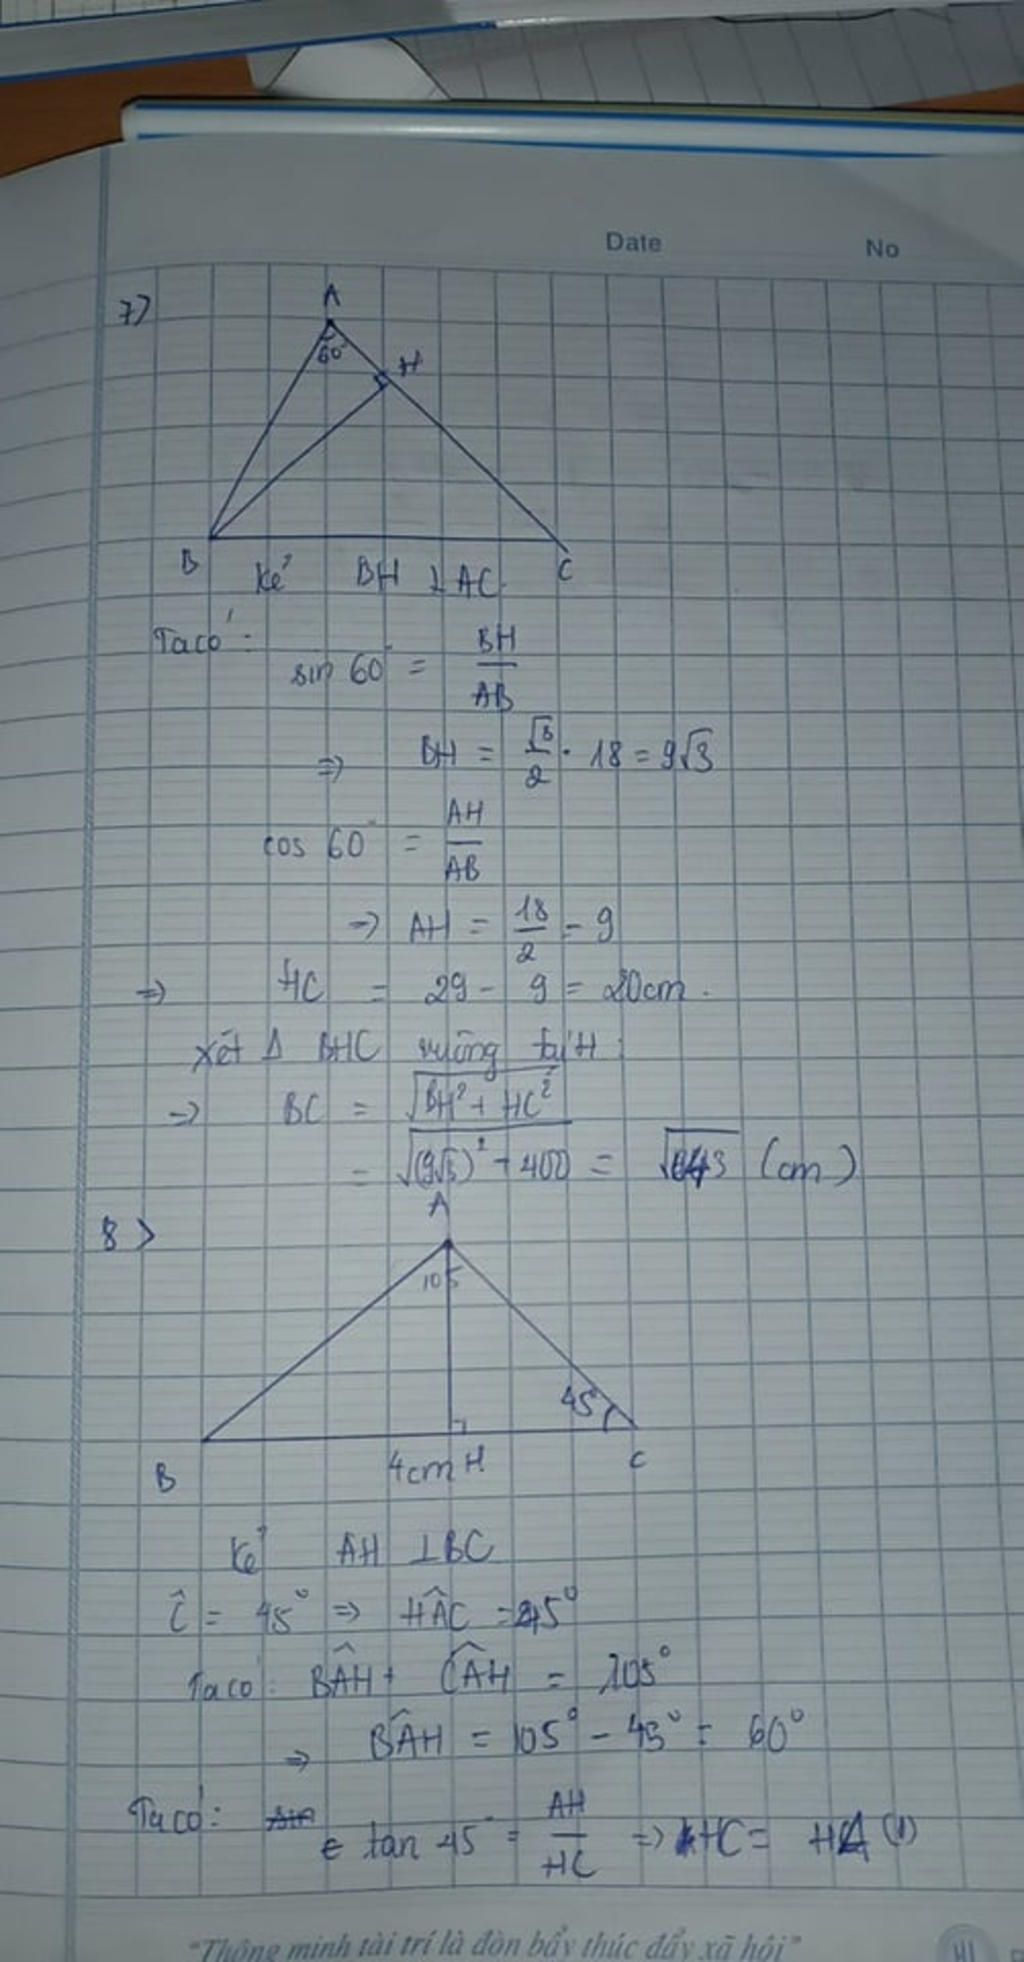 Date No
7)
A
60°
H
B
C
Kẻ BH ⊥ AC
Ta có:
sin 60° = BH / AB
=> BH = √3 / 2 . 18 = 9√3
cos 60° = AH / AB
=> AH = 18 / 2 = 9
=> HC = 29 - 9 = 20cm.
Xét Δ BHC vuông tại H:
=> BC = √(BH² + HC²)
= √((9√3)² + 400) = √643 (cm)
8>
A
105
45°
B
4cm H
C
Kẻ AH ⊥ BC
Ĉ = 45° => HÂC = 45°
Ta có: BÂH + CÂH = 105°
=> BÂH = 105° - 45° = 60°
Ta có: tan 45° = AH / HC => HC = HA (1)
"Thông minh tài trí là đòn bẩy thúc đẩy xã hội"